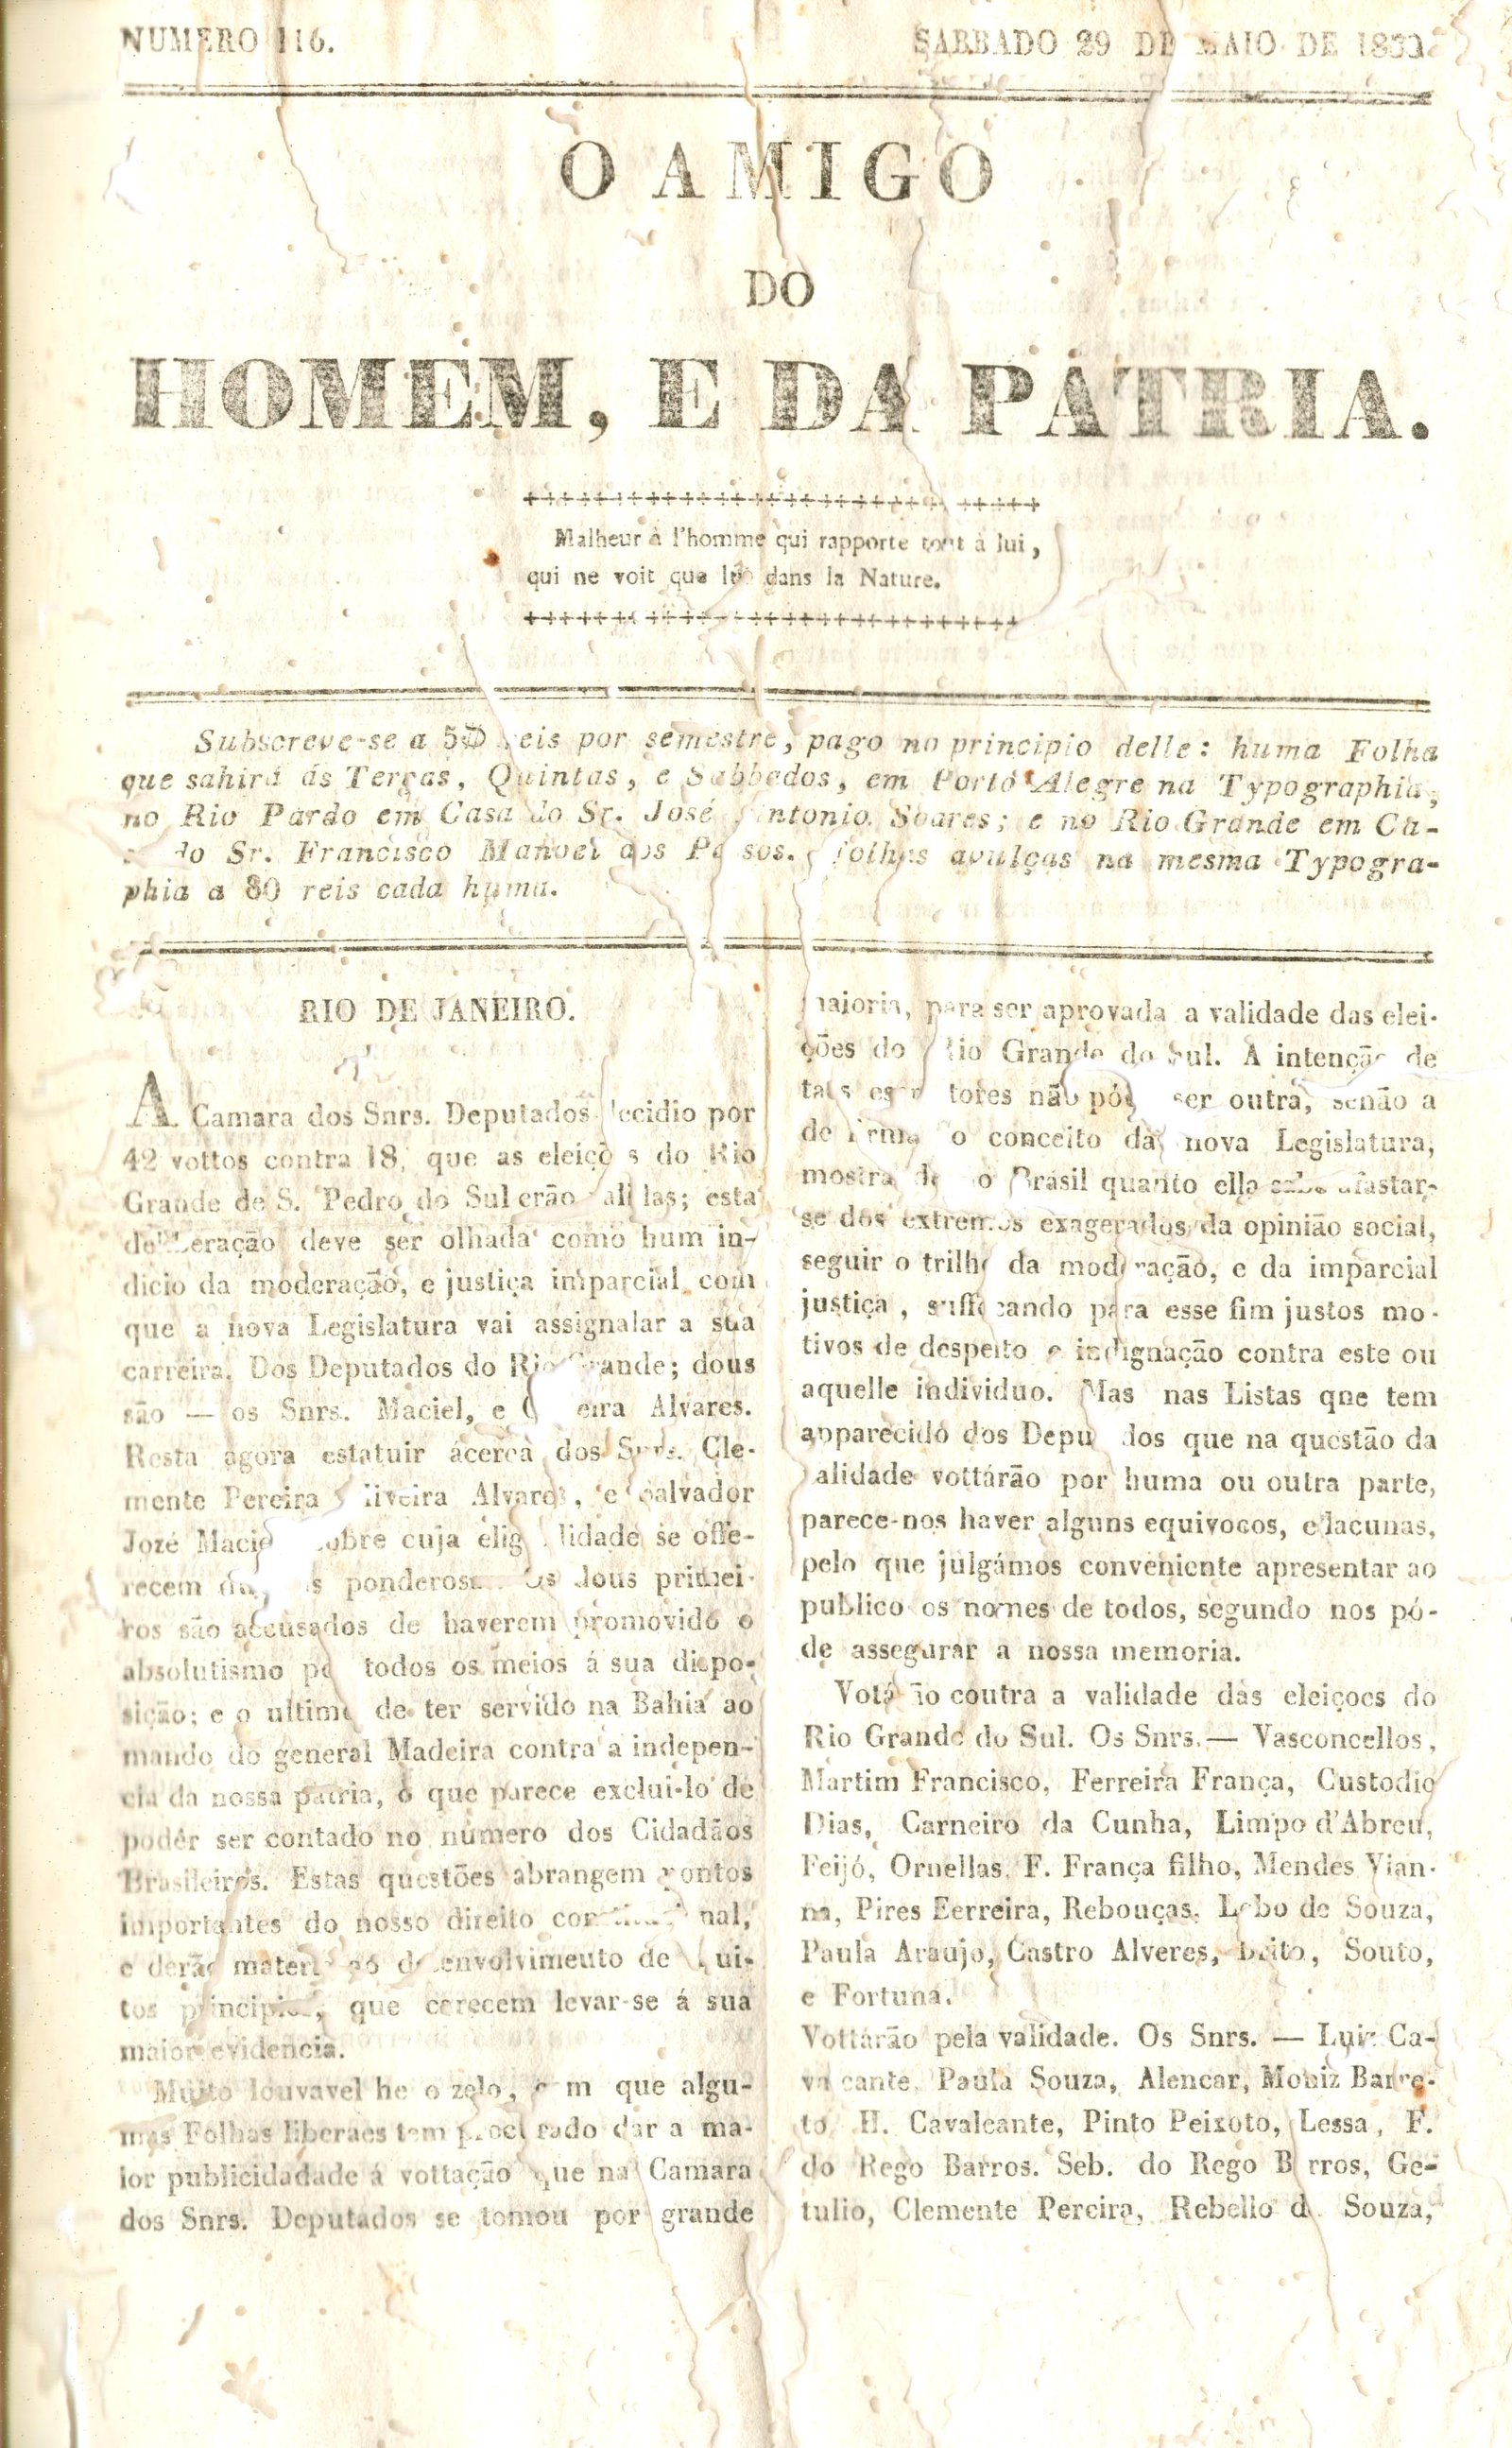 NUMERO 116.
SABBADO 29 DE MAIO DE 1830.
O AMIGO
DO
HOMEM, E DA PATRIA.
Malheur à l'homme qui rapporte tout à lui,
qui ne voit que lui dans la Nature.
Subscreve-se a 5$ reis por semestre, pago no principio delle: huma Folha
que sahirá ás Terças, Quintas, e Sabbados, em Porto Alegre na Typographia,
no Rio Pardo em Casa do Sr. José Antonio Soares; e no Rio Grande em Ca-
do Sr. Francisco Manoel dos Passos. folhas avulças na mesma Typogra-
phia a 80 reis cada huma.
RIO DE JANEIRO.
A Camara dos Snrs. Deputados decidio por
42 vottos contra 18, que as eleições do Rio
Grande de S. Pedro do Sul erão validas; esta
deliberação deve ser olhada como hum in-
dicio da moderação, e justiça imparcial com
que a nova Legislatura vai assignalar a sua
carreira. Dos Deputados do Rio Grande; dous
são — os Snrs. Maciel, e Oliveira Alvares.
Resta agora estatuir ácerca dos Snrs. Cle-
mente Pereira Oliveira Alvares, e Salvador
Jozé Maciel sobre cuja eligibilidade se offe-
recem ponderosas Os dous primei-
ros são accusados de haverem promovido o
absolutismo por todos os meios á sua dispo-
sição; e o ultimo de ter servido na Bahia ao
mando do general Madeira contra a indepen-
cia da nossa patria, o que parece exclui-lo de
podér ser contado no número dos Cidadãos
Brasileiros. Estas questões abrangem pontos
importantes do nosso direito constitucional,
e derão materia aó desenvolvimeuto de mui-
tos principios, que carecem levar-se á sua
maior evidencia.
Muito louvavel he o zelo, com que algu-
mas Folhas liberaes tem procurado dar a ma-
ior publicidadade á vottação que na Camara
dos Snrs. Deputados se tomou por grande
maioria, para ser aprovada a validade das elei-
ções do Rio Grande do Sul. A intenção de
taes escritores não póde ser outra, senão a
de firmar o conceito da nova Legislatura,
mostrando ao Brasil quanto ella sabe afastar-
se dos extremos exagerados da opinião social,
seguir o trilho da moderação, e da imparcial
justiça, suffocando para esse fim justos mo-
tivos de despeito e indignação contra este ou
aquelle individuo. Mas nas Listas qne tem
apparecido dos Deputados que na questão da
validade vottárão por huma ou outra parte,
parece-nos haver alguns equivocos, e lacunas,
pelo que julgámos conveniente apresentar ao
publico os nomes de todos, segundo nos pó-
de assegurar a nossa memoria.
Votárão coutra a validade das eleiçoes do
Rio Grande do Sul. Os Snrs.— Vasconcellos,
Martim Francisco, Ferreira França, Custodio
Dias, Carneiro da Cunha, Limpo d'Abreu,
Feijó, Ornellas, F. França filho, Mendes Vian-
na, Pires Eerreira, Rebouças, Lobo de Souza,
Paula Araujo, Castro Alveres, Brito, Souto,
e Fortuna.
Vottárão pela validade. Os Snrs. — Luiz Ca-
valcante, Paula Souza, Alencar, Moniz Barre-
to, H. Cavalcante, Pinto Peixoto, Lessa, F.
do Rego Barros. Seb. do Rego Barros, Ge-
tulio, Clemente Pereira, Rebello de Souza,